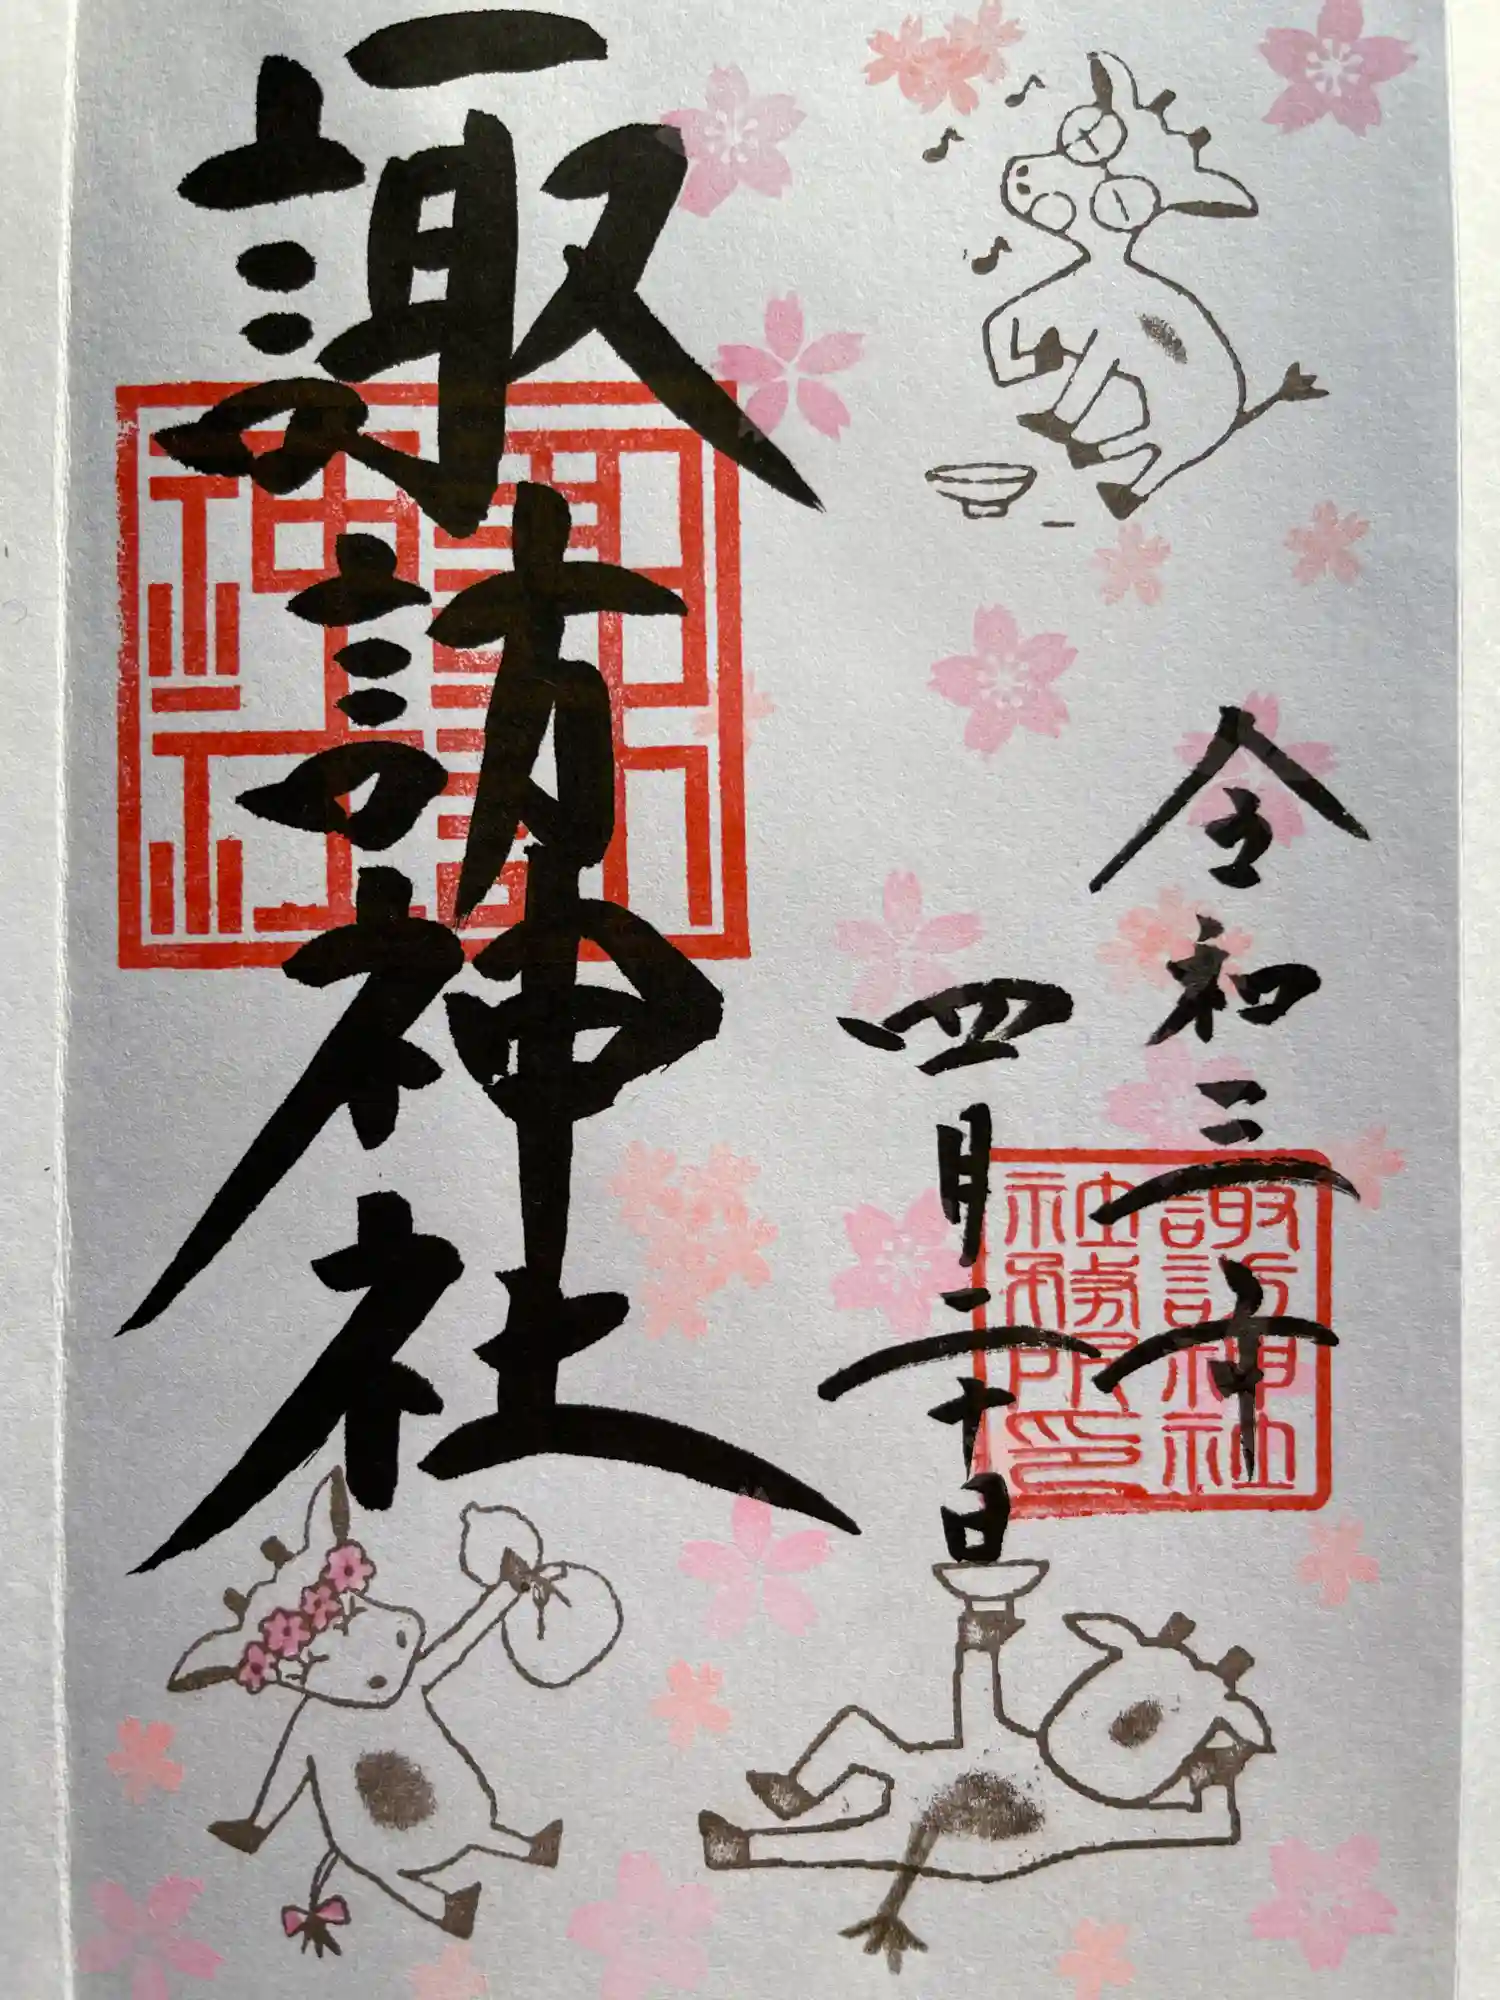 令和三年
四月二十日
諏訪神社
諏訪神社
社務所印
諏訪
神社